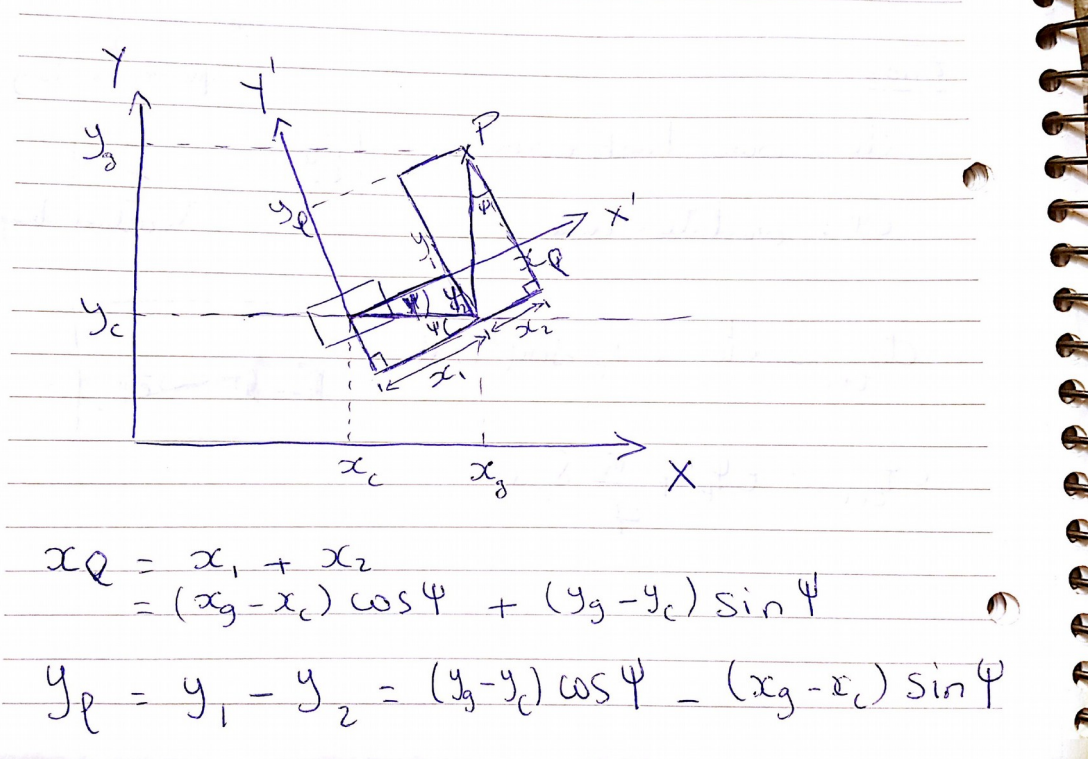 Y
Y'
P
y_g
y_l
ψ
X'
y_1
x Q
ψ y_2
y_c
ψ
x_2
x_1
x_c x_g X
x_Q = x_1 + x_2
= (x_g - x_c) cos ψ + (y_g - y_c) sin ψ
y_l = y_1 - y_2 = (y_g - y_c) cos ψ - (x_g - x_c) sin ψ